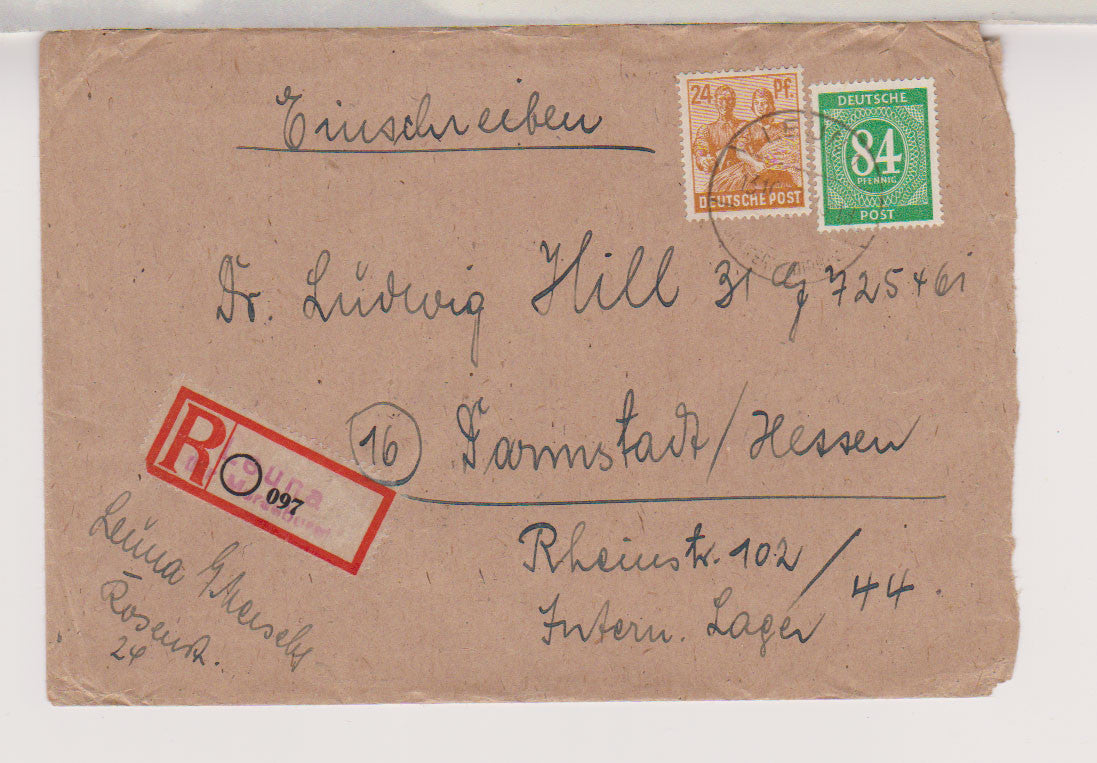 Einschreiben
24 Pf.
DEUTSCHE POST
DEUTSCHE
84
PFENNIG
POST
Dr. Ludwig Hill 31 G 725461
16 Darmstadt/Hessen
Rheinstr. 102/44.
Intern. Lager
R Leuna
097
Leuna
Rosenstr.
24